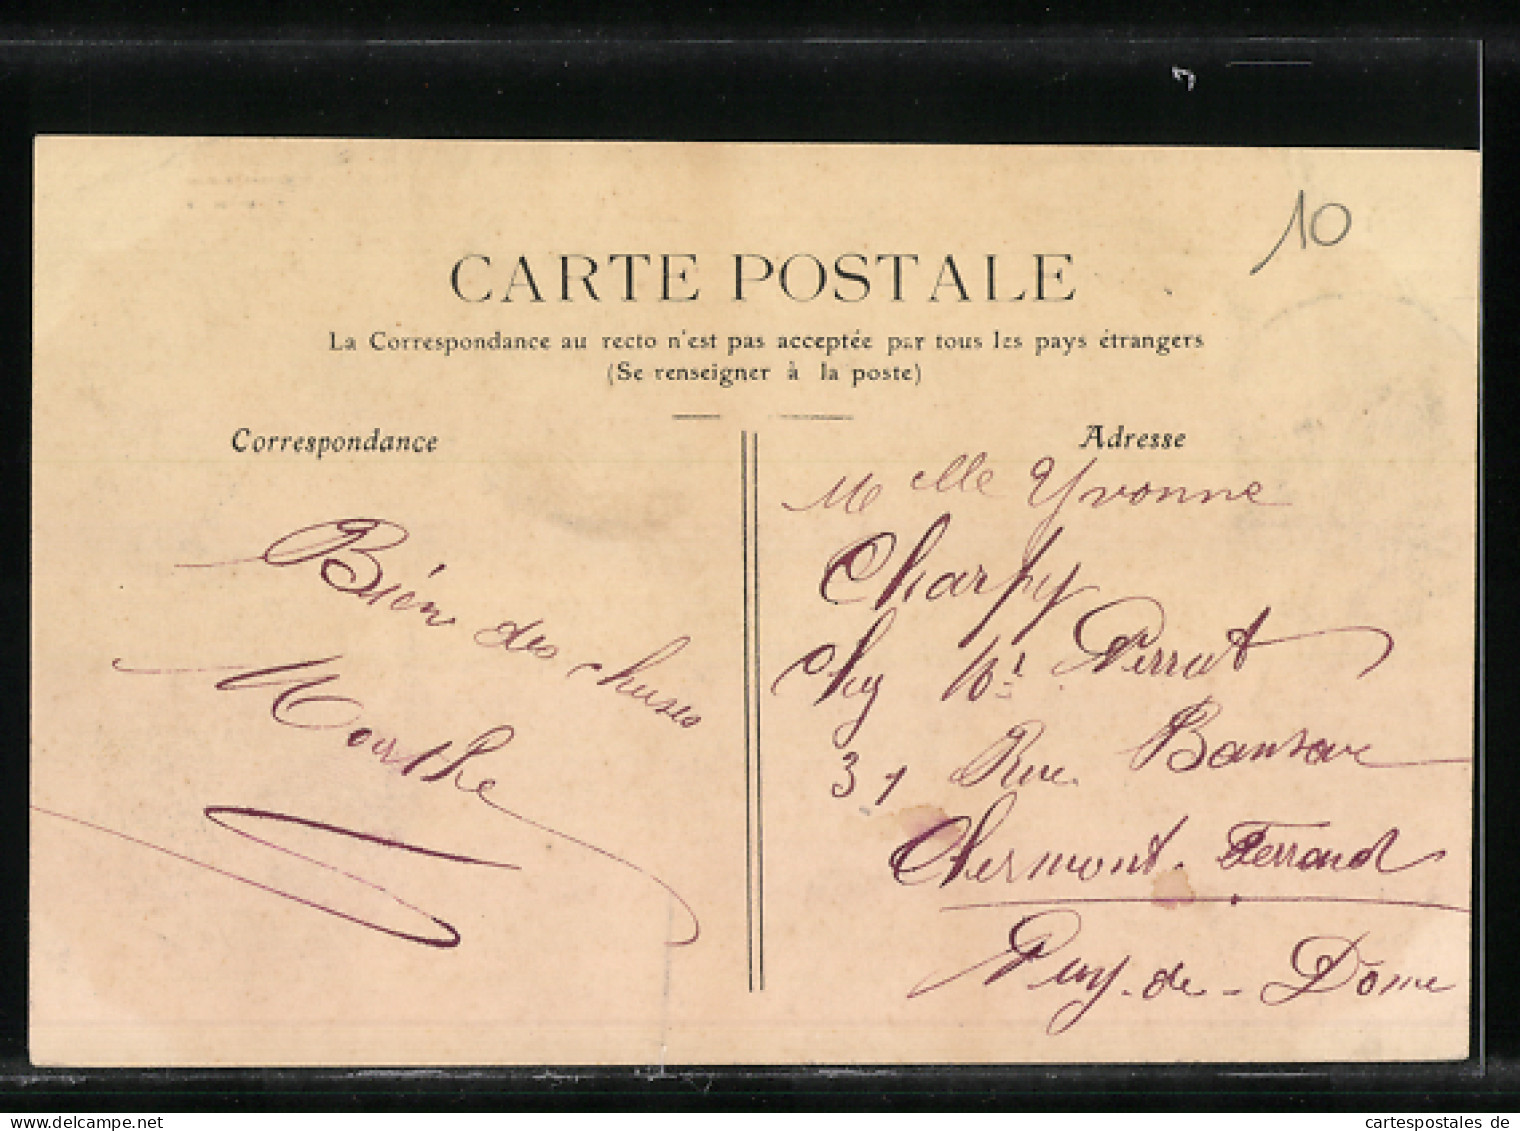 10
CARTE POSTALE
La Correspondance au recto n'est pas acceptée par tous les pays étrangers
(Se renseigner à la poste)
Correspondance
Adresse
Bien des choses
Marthe
Melle Yvonne
Charpy
Chez Perrat
31 Rue
Clermont-Ferrand
Puy-de-Dôme
www.delcampe.net
cartespostales de